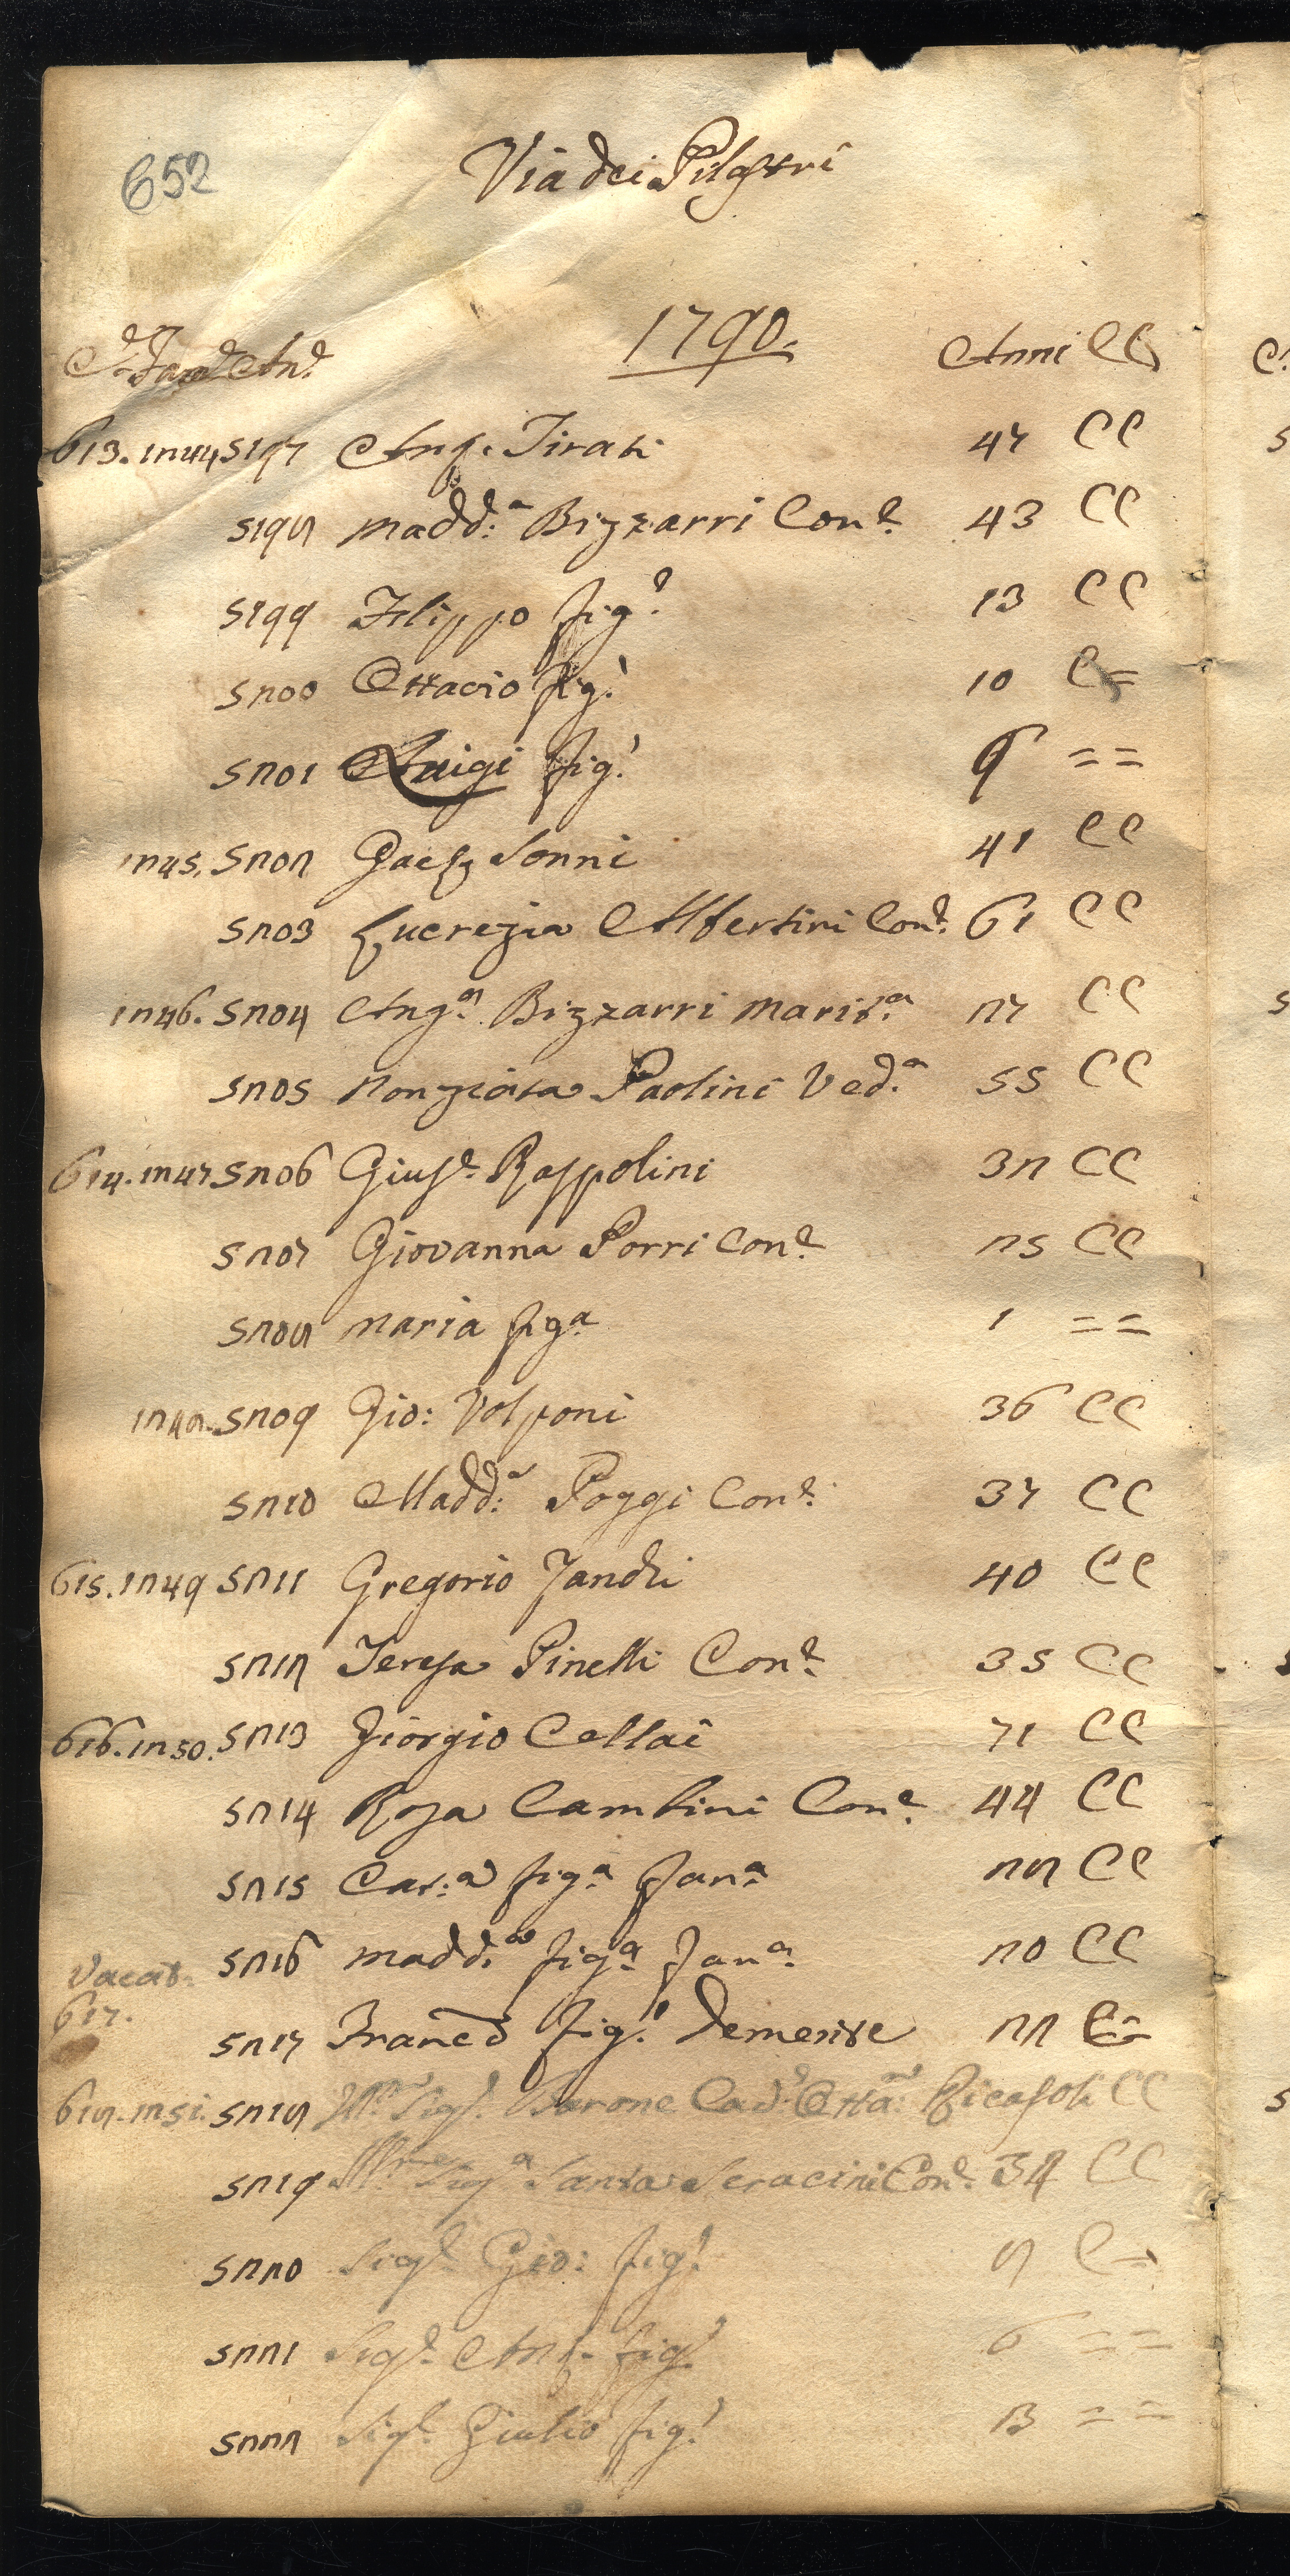 652
Via dei Pilastri
1790.
C.e Fam.e An.e Anni CC
613. 1244 5197 Ang.o Tirati 47 CC
5198 Madd.a Bizzarri Con.e 43 CC
5199 Filippo fig.o 13 CC
5200 Ottavio fig.o 10 C=
5201 Luigi fig.o 9 ==
1245. 5202 Gaet.o Sonni 41 CC
5203 Lucrezia Albertini Con.e 61 CC
1246. 5204 Ang.a Bizzarri Marit.a 27 CC
5205 Nonziata Paolini Ved.a 55 CC
614. 1247 5206 Gius.e Raspolini 32 CC
5207 Giovanna Porri Con.e 25 CC
5208 Maria fig.a 1 ==
1248. 5209 Gio: Volponi 36 CC
5210 Madd.a Poggi Con.e 37 CC
615. 1249 5211 Gregorio Landi 40 CC
5212 Teresa Pinelli Con.e 35 CC
616. 1250. 5213 Giorgio Cellai 71 CC
5214 Rosa Cambini Con.e 44 CC
5215 Cat.a fig.a Fan.a 28 CC
5216 Madd.a fig.a Fan.a 20 CC
Vacat:
617.
5217 Franc.o fig.o Demente 22 C=
618. 1251. 5218 Ill.mo Sig.e Barone Cav.e Otta: Ricasoli CC
5219 Ill.ma Sig.a Santa Seracini Con.e 34 CC
5220 Sig.e Gio: fig.o 8 C=
5221 Sig.e Ant.o fig.o 6 ==
5222 Sig.e Giulio fig.o ==